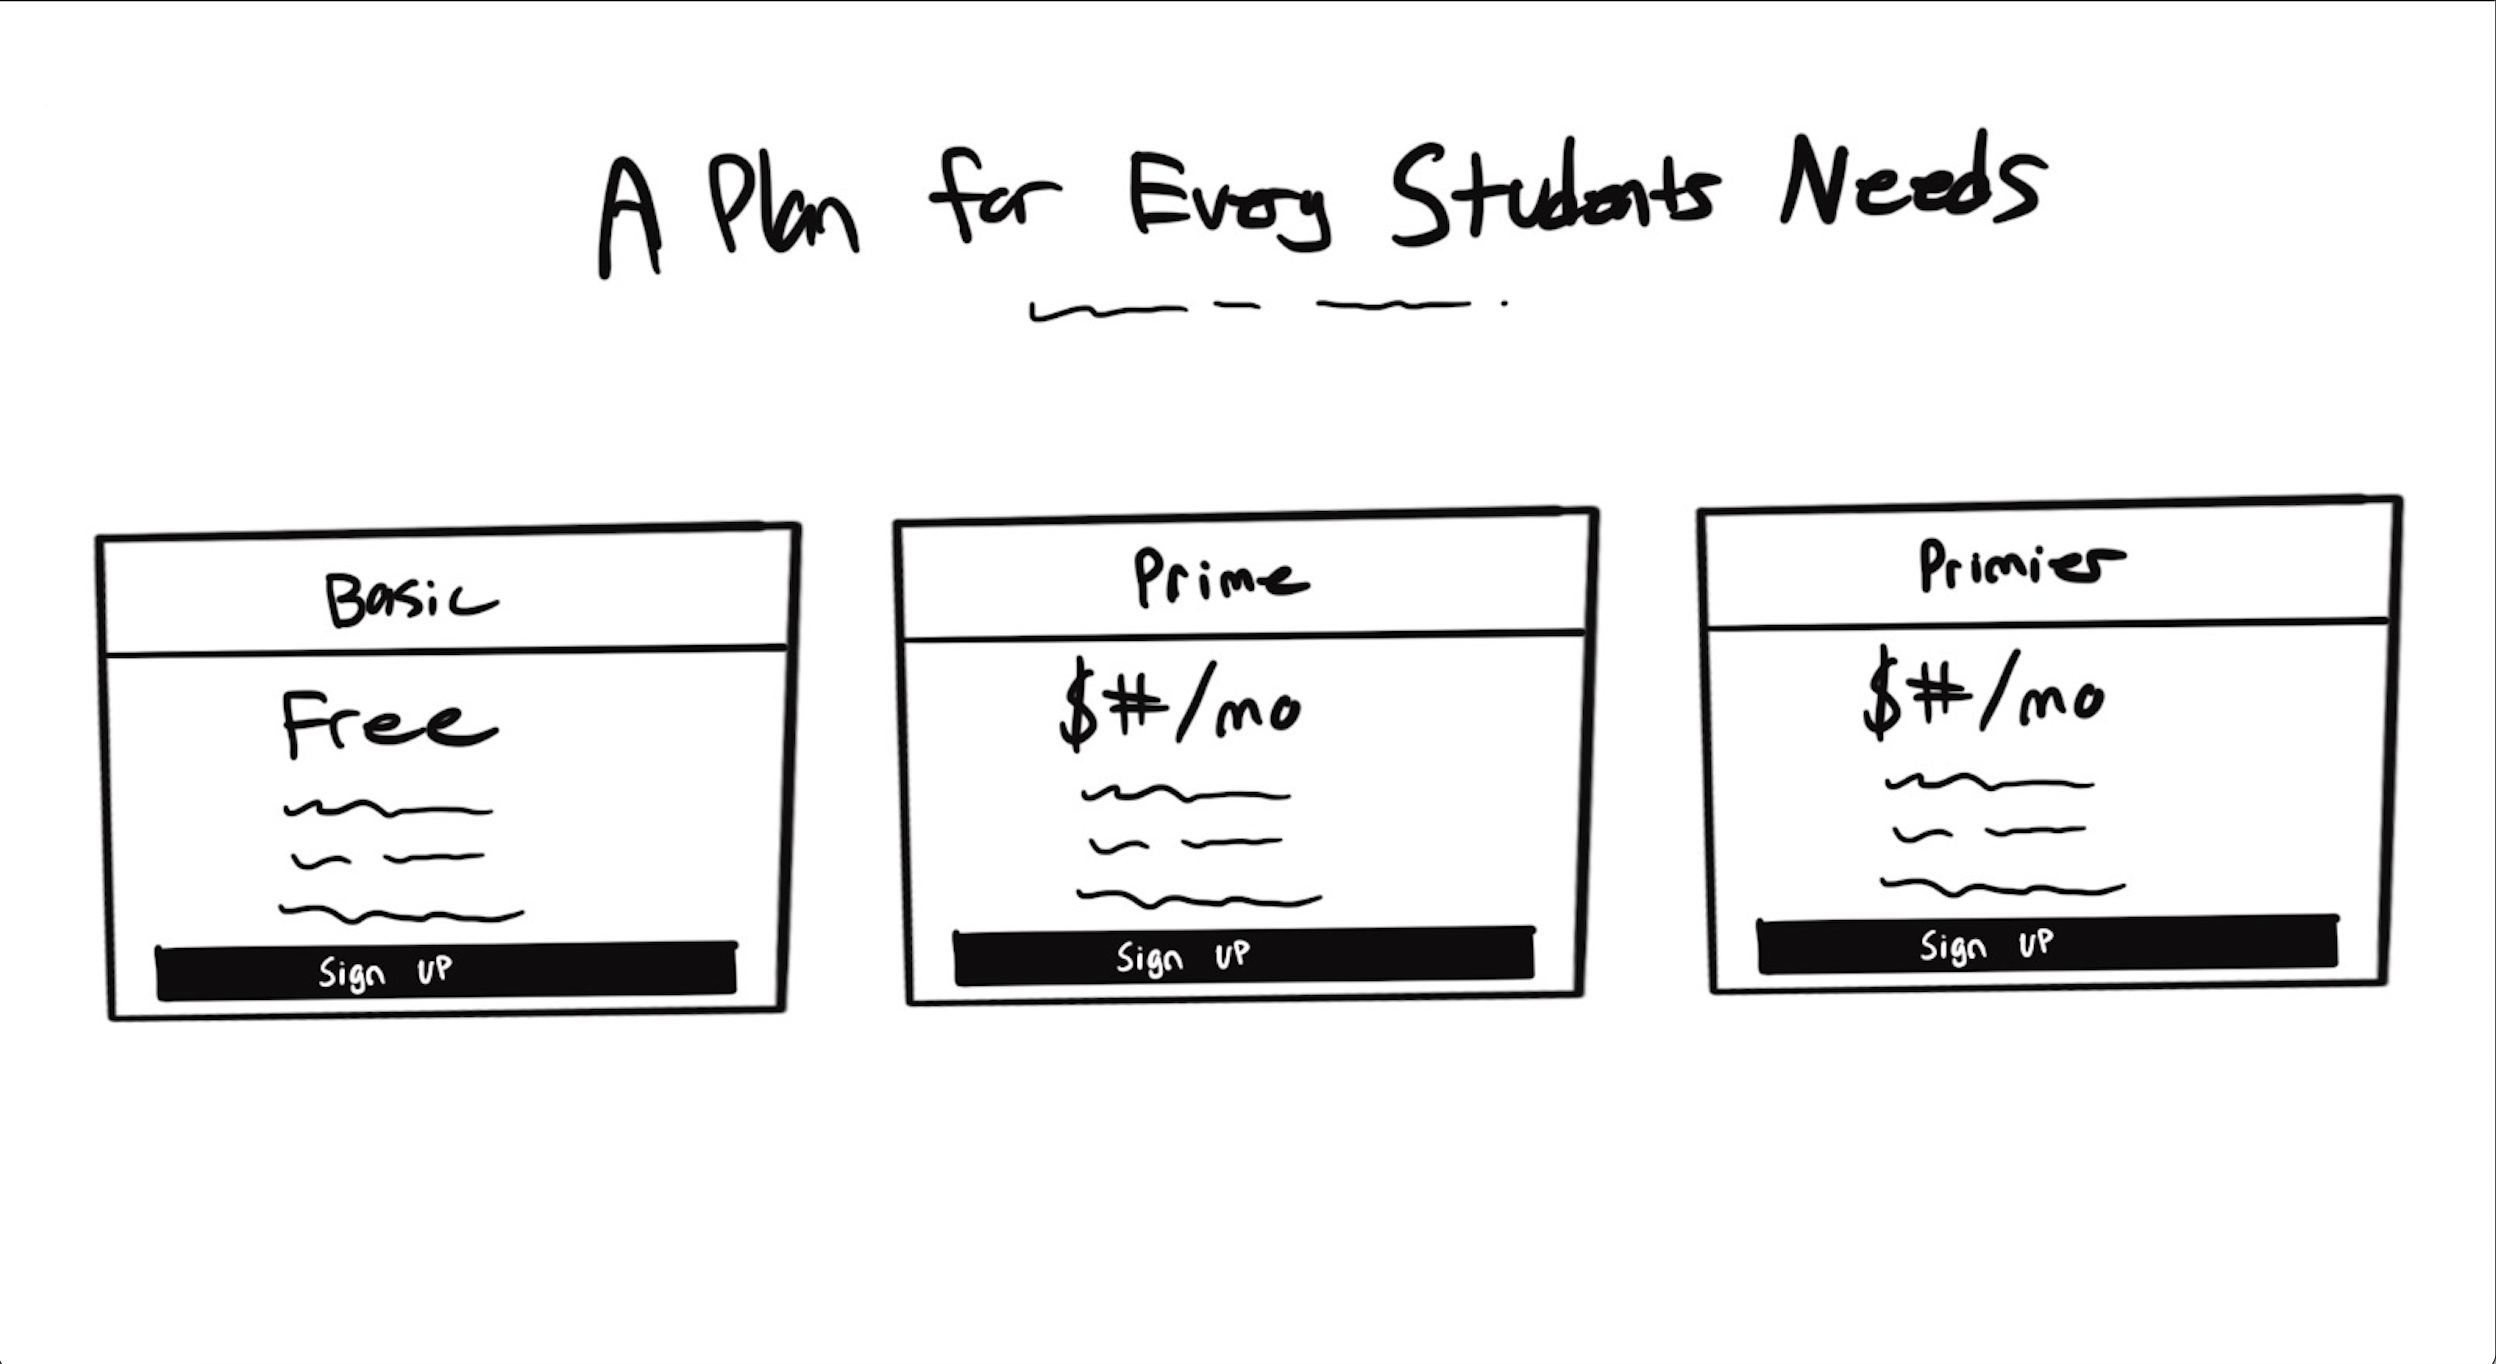 A Plan for Every Students Needs
Basic
Free
Sign UP
Prime
$#/mo
Sign UP
Primier
$#/mo
Sign UP